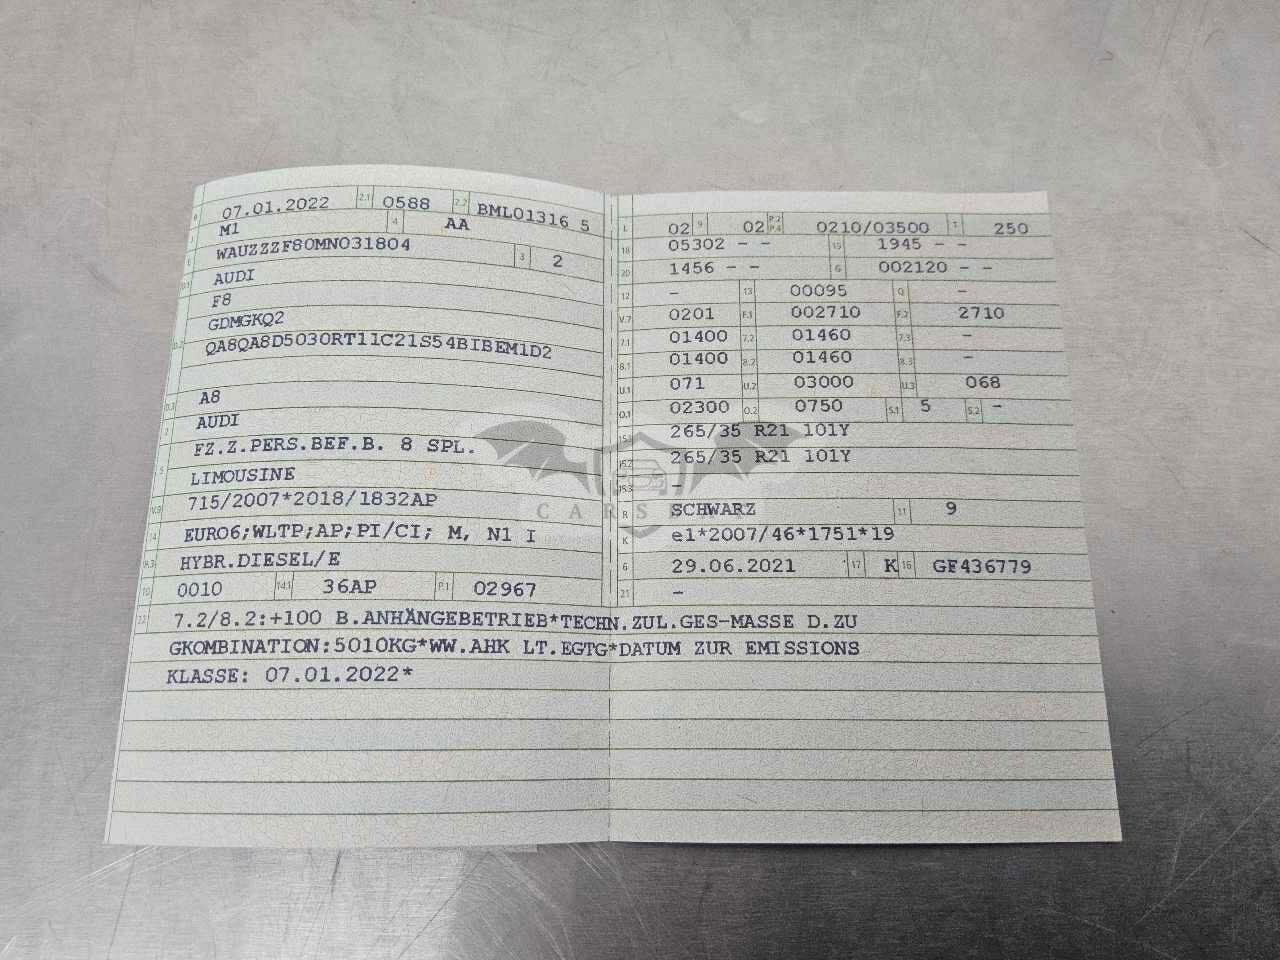 B 07.01.2022 2.1 0588 2.2 BML01316 5
J M1 4 AA
E WAUZZZF80MN031804 3 2
D.1 AUDI
F8
GDMGKQ2
D.2 QA8QA8D5030RT11C21S54BIBEM1D2
D.3 A8
2 AUDI
FZ.Z.PERS.BEF.B. 8 SPL.
5 LIMOUSINE
V.9 715/2007*2018/1832AP
14 EURO6;WLTP;AP;PI/CI; M, N1 I
P.3 HYBR.DIESEL/E
10 0010 14.1 36AP P.1 02967
L 02 9 02 P.2 P.4 0210/03500 T 250
18 05302 - - 19 1945 - -
20 1456 - - G 002120 - -
12 - 13 00095 Q -
V.7 0201 F.1 002710 F.2 2710
7.1 01400 7.2 01460 7.3 -
8.1 01400 8.2 01460 8.3 -
U.1 071 U.2 03000 U.3 068
O.1 02300 O.2 0750 S.1 5 S.2 -
15.1 265/35 R21 101Y
15.2 265/35 R21 101Y
15.3 -
R SCHWARZ 11 9
K e1*2007/46*1751*19
6 29.06.2021 17 K 16 GF436779
21 -
22 7.2/8.2:+100 B.ANHÄNGEBETRIEB*TECHN.ZUL.GES-MASSE D.ZU
GKOMBINATION:5010KG*WW.AHK LT.EGTG*DATUM ZUR EMISSIONS
KLASSE: 07.01.2022*